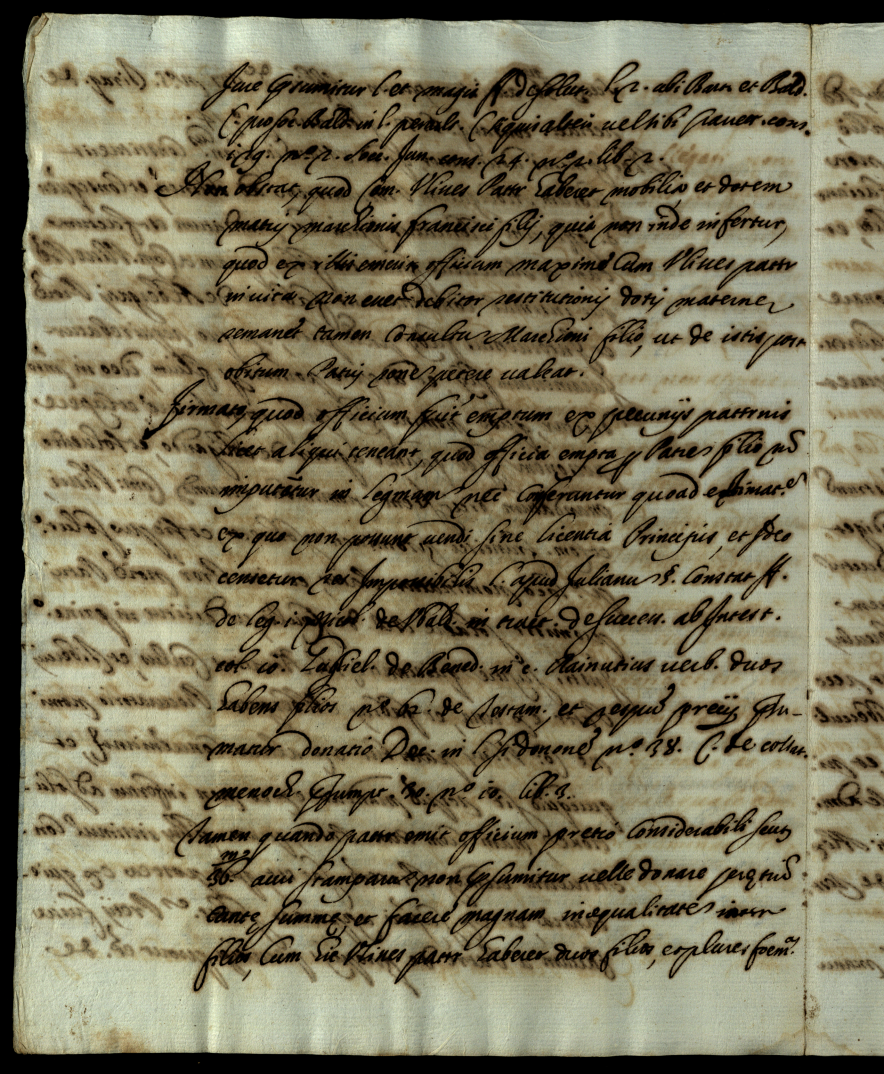 Jure presumitur l. et magis ff. de solut. l. 2. ubi Bart. et Bald.
C. pro soc. Bald. in l. pen. C. qui alteri vel sibi Paver. cons.
n.º 2. Soc. Jun. cons. 24. n.º 2. lib. 2.
Non obstat, quod Com. Ulives Pater haberet mobilia, et dotem
matris marchionis francisci filij, quia non inde infertur,
quod ex illis emerit officium maxime Cum Ulives pater
in vita non esset debitor restitutionis dotis materne
remanet tamen Marchioni filio, ut de istis post
obitum Patris petere valeat.
Firmato, quod officium fuit emptum ex pecunijs paternis
licet aliqui teneant, quod officia empta p Patre filio nõ
imputẽtur in legmam nec Conferantur quoad extimat.e
ex quo non possunt vendi sine licentia Principis, et ideo
censetur res Impossibilis l. apud Julianũ §. Constat ff.
de leg. i. Nicol. de Ubald. in tract. de succes. ab Intest.
col. 10. Guliel. de Bened. in c. Rainutius verb. duos
habens filios n.º 62. de Testam. et respũ precij psu-
matur donatio Dec. in l. si donone n.º 38. C. de collat.
menoch. psumpt. 30. n.º 10. lib. 3.
Tamen quando pater emit officium pretio Considerabili scut.
36.m auri stamparum non presumitur velle donare
tante summe, et facere magnam inequalitatẽ inter
filios, Cum hic Ulives pater haberet duos filios, et plures foem.s